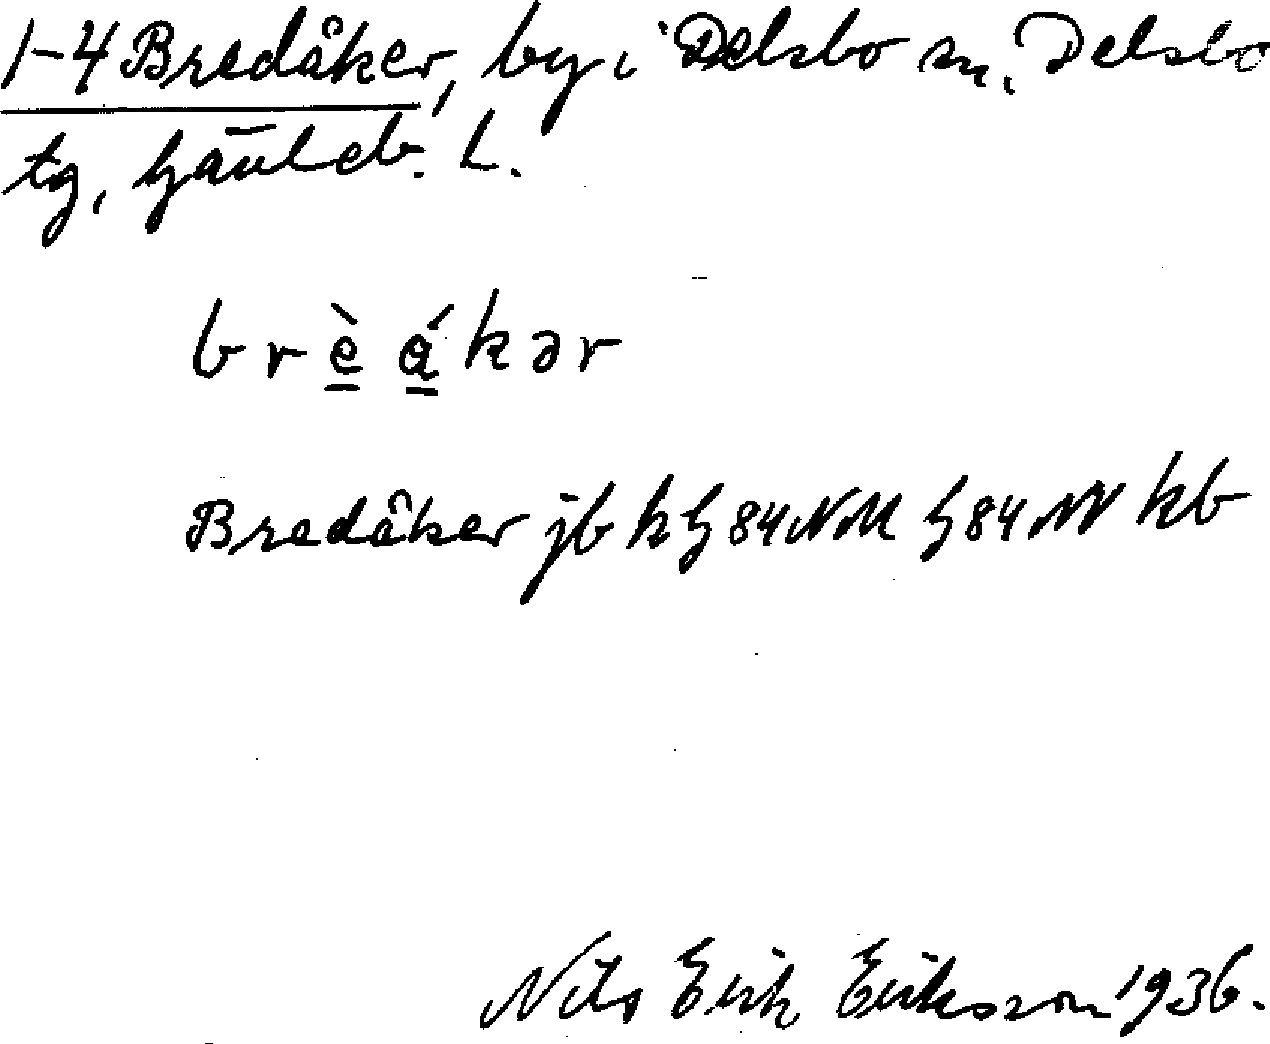 1-4 Bredåker, by i Delsbo sn, Delsbo
tg, Gävleb. L.
brè̱ á̱kər
Bredåker jb k G 84 NM G 84 NV kb
Nils Erik Eriksson 1936.